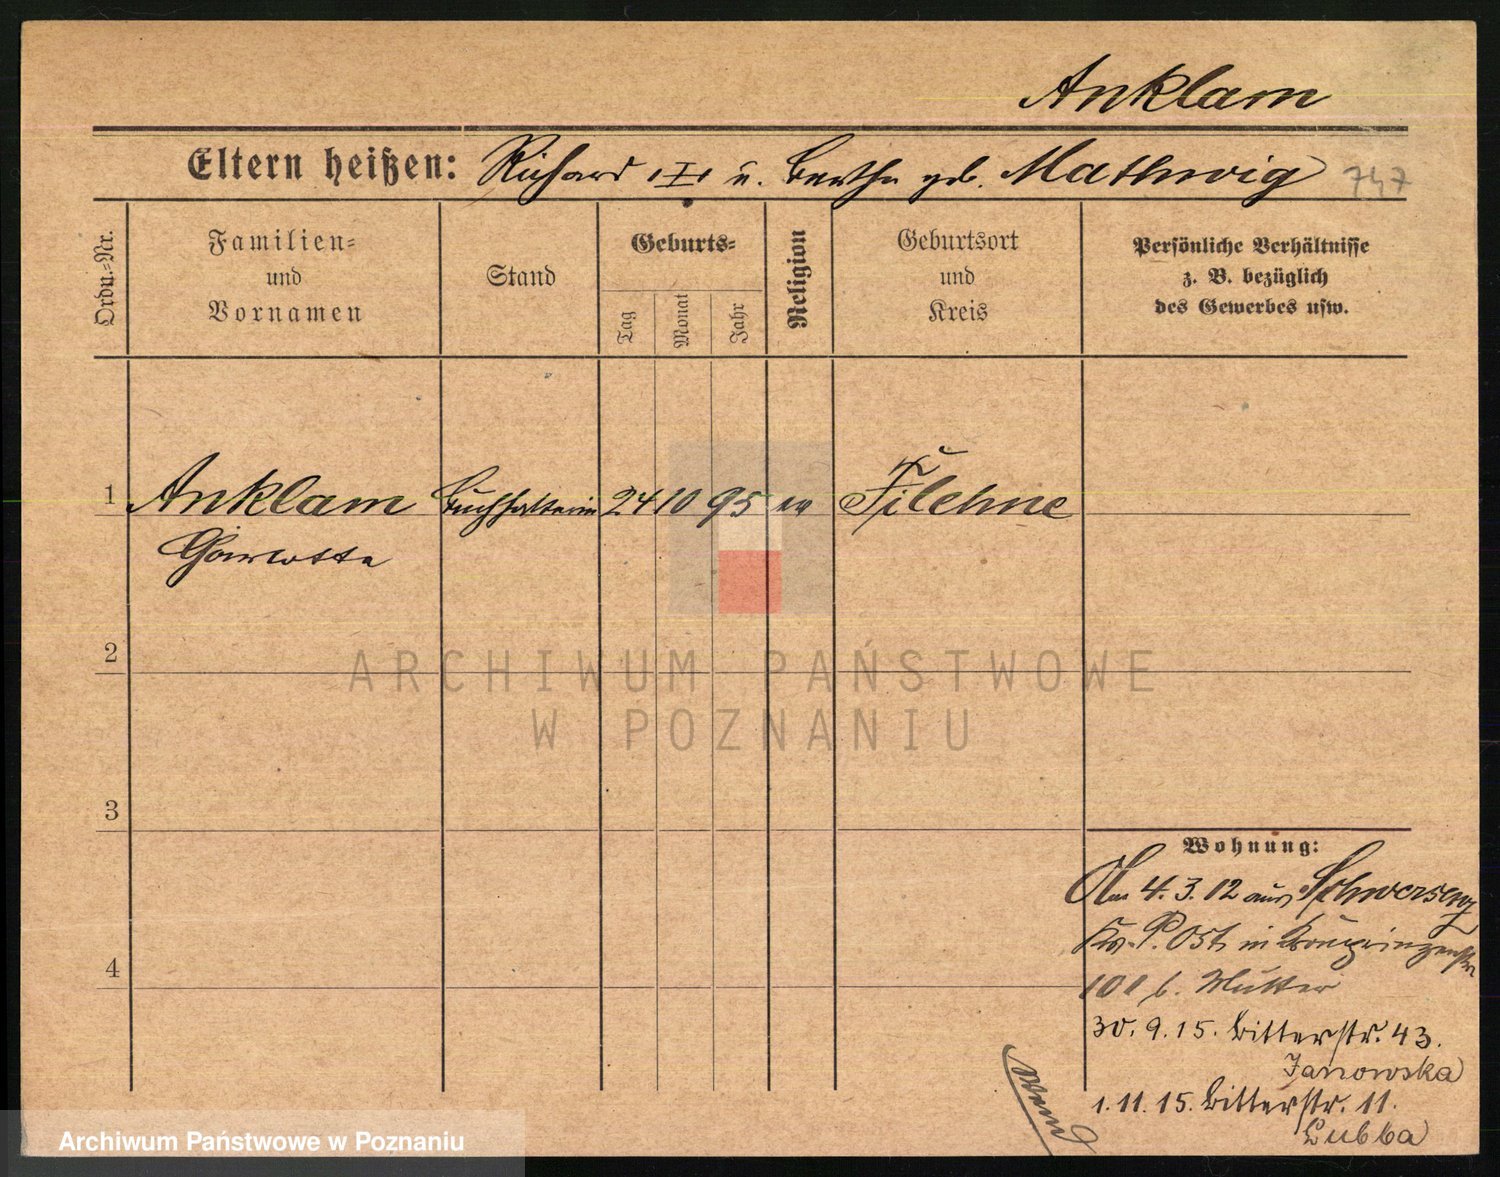 Anklam
Eltern heißen: Richard u. Bertha geb. Mathwig 747
Ordn.-Nr.
Familien-
und
Vornamen
Stand
Geburts-
Tag
Monat
Jahr
Religion
Geburtsort
und
Kreis
Persönliche Verhältnisse
z. B. bezüglich
des Gewerbes usw.
1 Anklam Buchhalterin 24 10 95 ev Filehne
2
3
4
Wohnung:
4.3.12 aus Schwersenz
Kr. P. Ost, in Kronprinzenstr
101 b. Mutter
30.9.15. Ritterstr. 43.
Janowska
1.11.15. Ritterstr. 11.
Lubba
ARCHIWUM PAŃSTWOWE
W POZNANIU
Archiwum Państwowe w Poznaniu